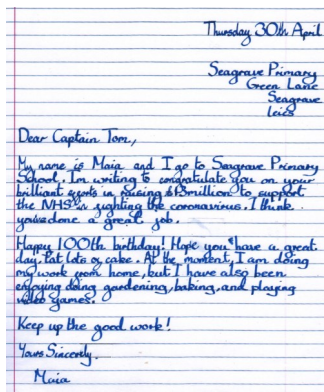 Thursday 30th April
Seagrave Primary
Green Lane
Seagrave
Leics
Dear Captain Tom,
My name is Maia and I go to Seagrave Primary
School. I'm writing to congratulate you on your
brilliant efforts in raising £13million to support
the NHS in fighting the coronavirus. I think
you've done a great job.
Happy 100th birthday! Hope you have a great
day. Eat lots of cake. At the moment, I am doing
my work from home, but I have also been
enjoying doing gardening, baking, and playing
video games.
Keep up the good work!
Yours Sincerely.
Maia